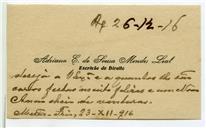 Ag 26-12-16
Adriano E. de Sousa Mendes Leal
Escrivão de Direito
deseja a V. Ex.ª e a quantos lhe são
caros festas muito felizes e um novo
Anno cheio de venturas.
23-XII-916